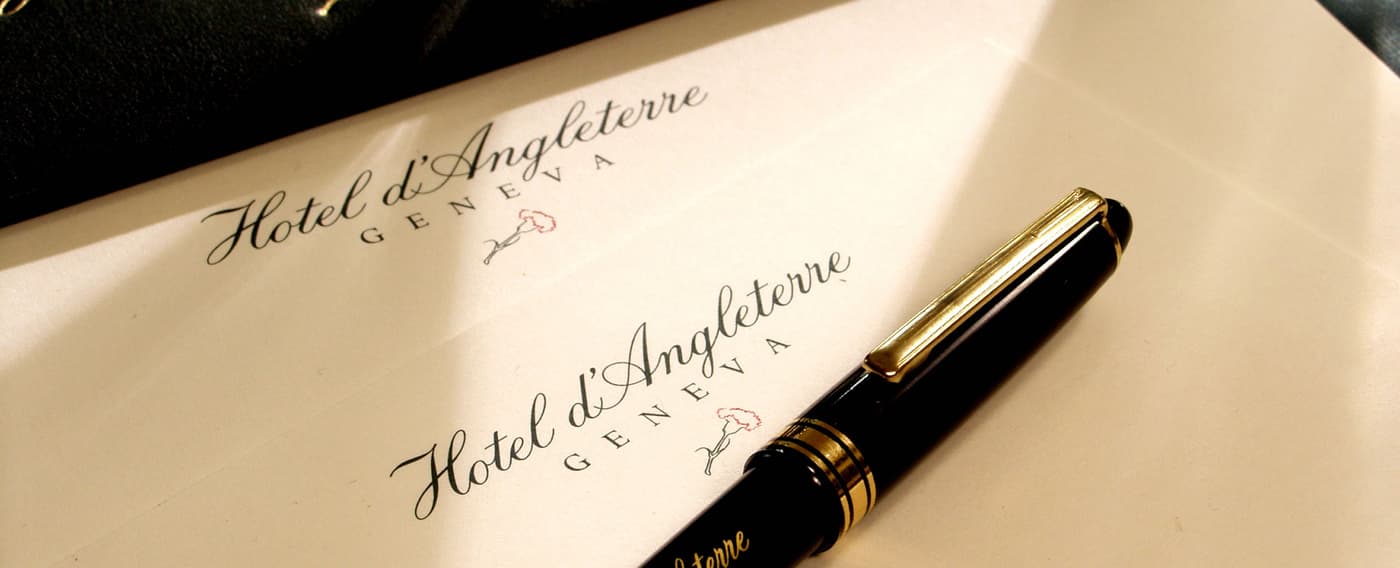 Hotel d'Angleterre
GENEVA
Hotel d'Angleterre
GENEVA